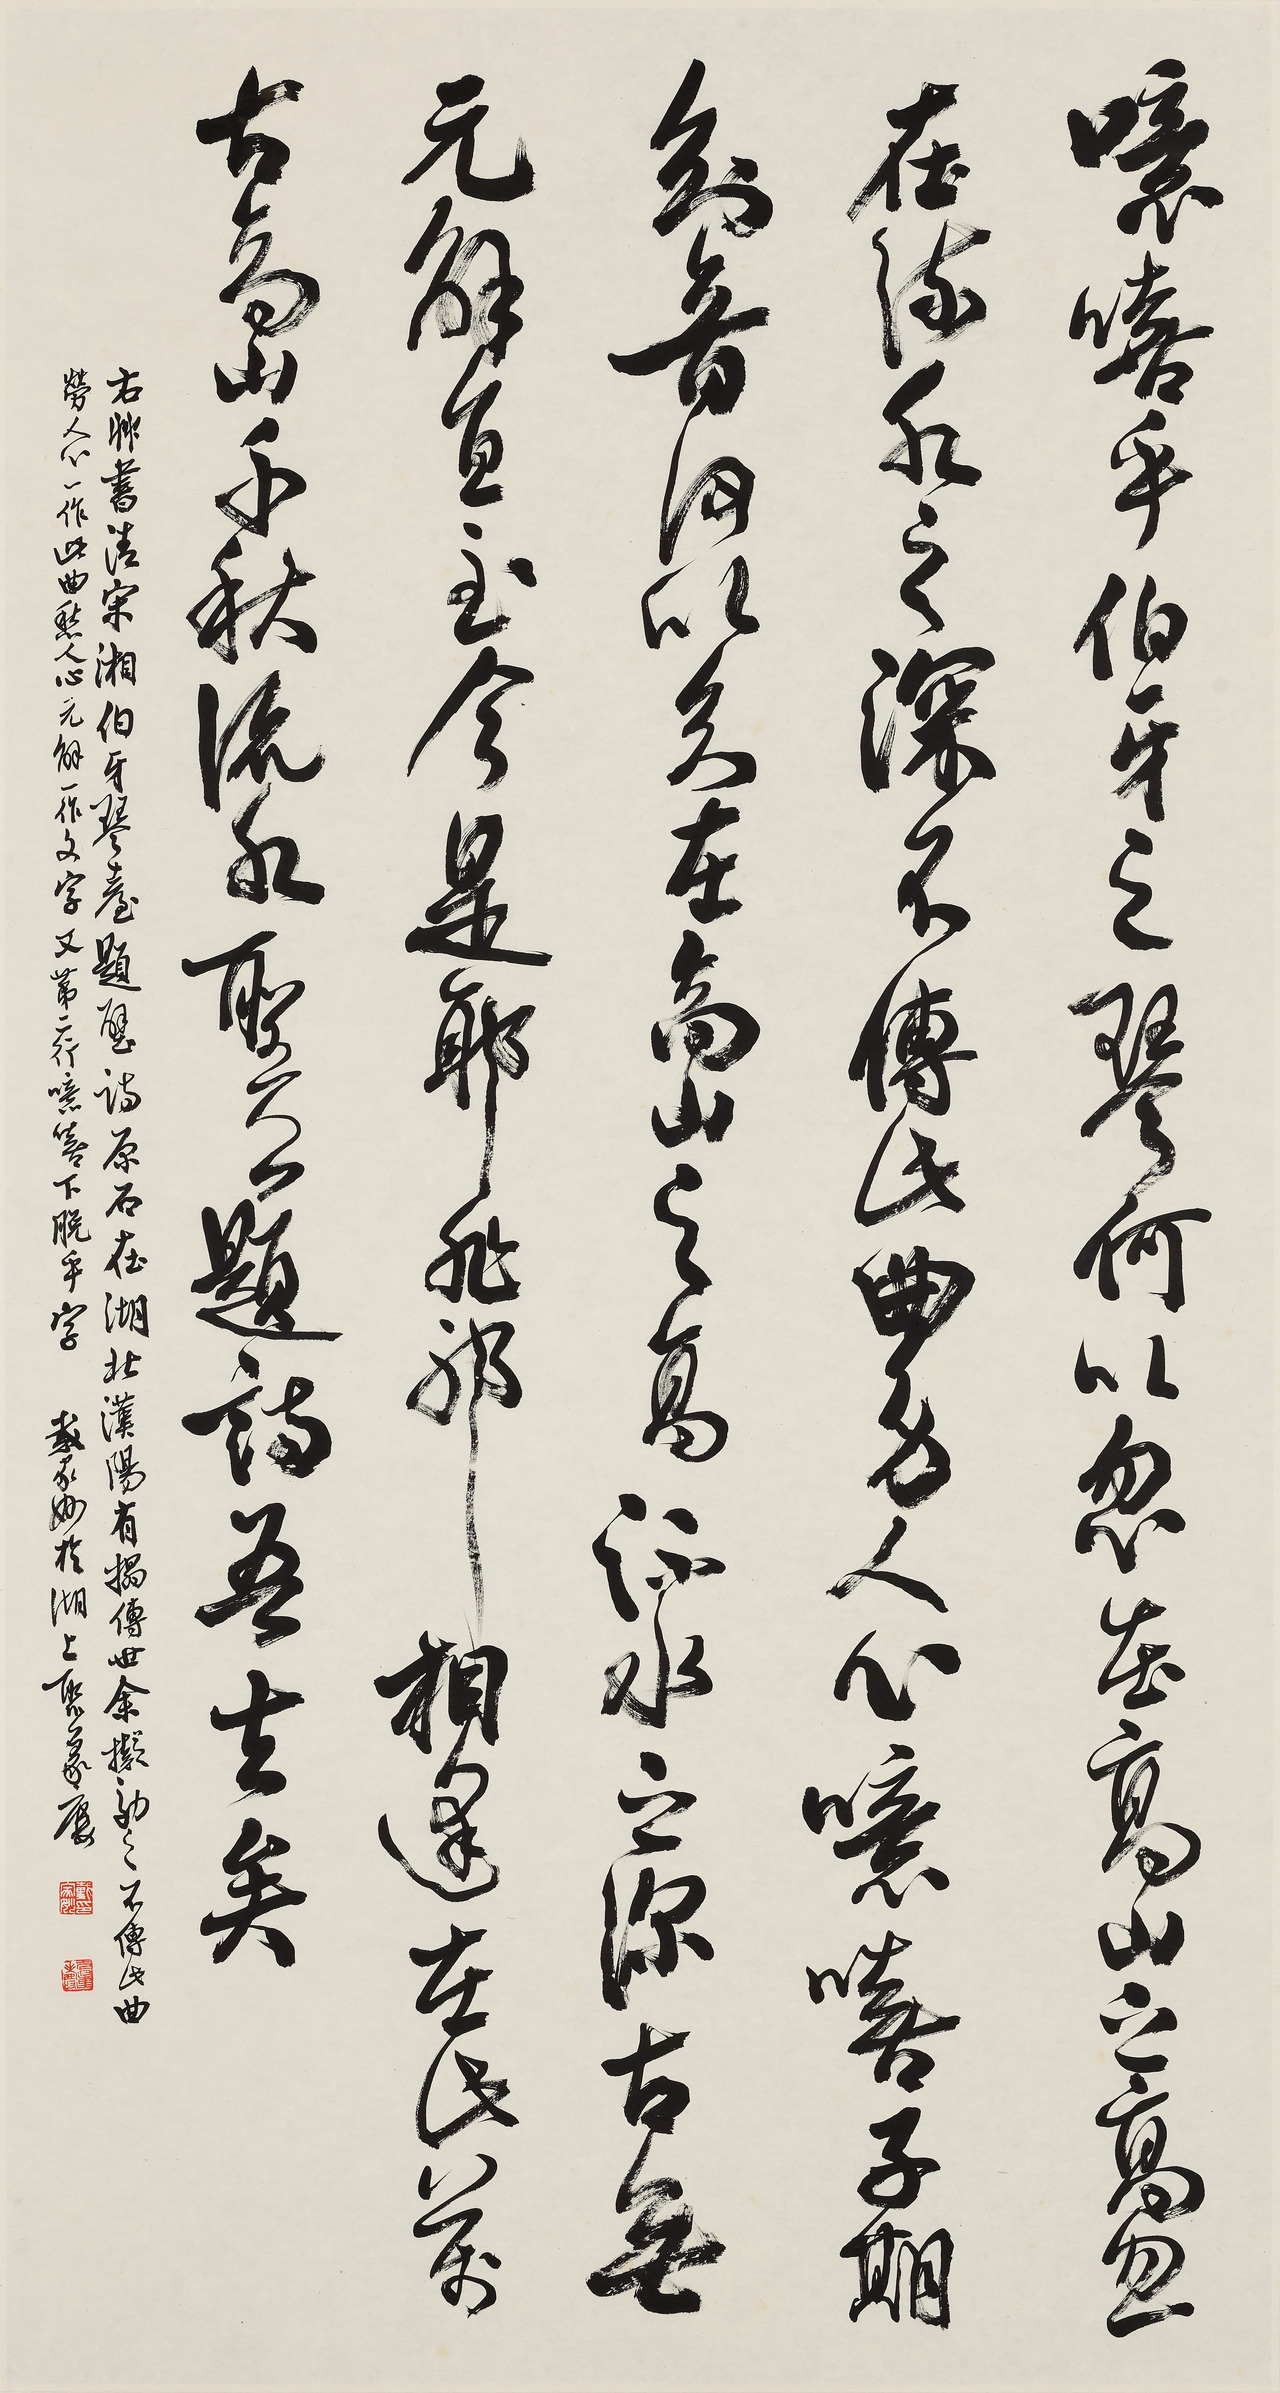 噫嘻乎伯牙之琴何以忽在高山之高忽
在流水之深不傳此曲勞人心噫嘻子期
知音何以久在高山之高流水之深古無
元解直至今是耶非耶相逢在此萬
古高山千秋流水壁上題詩吾去矣
右聯書清宋湘伯牙琴臺題壁詩原石在湖北漢陽有搨傳世余擬勒之不傳此曲
勞人心一作此曲愁人心元解一作文字又第二行噫嘻下脫乎字 戴家妙於湖上聚義廔